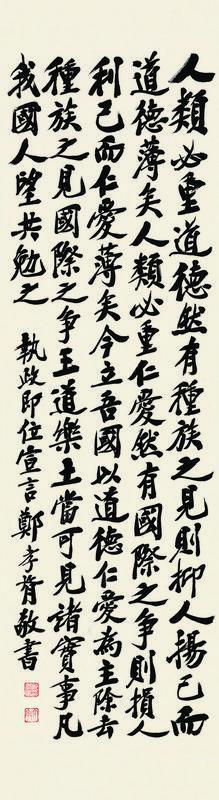 人類必重道德然有種族之見則抑人揚己而
道德薄矣人類必重仁愛然有國際之爭則損人
利己而仁愛薄矣今立吾國以道德仁愛為主除去
種族之見國際之爭王道樂土當可見諸實事凡
我國人望共勉之
執政即位宣言鄭孝胥敬書